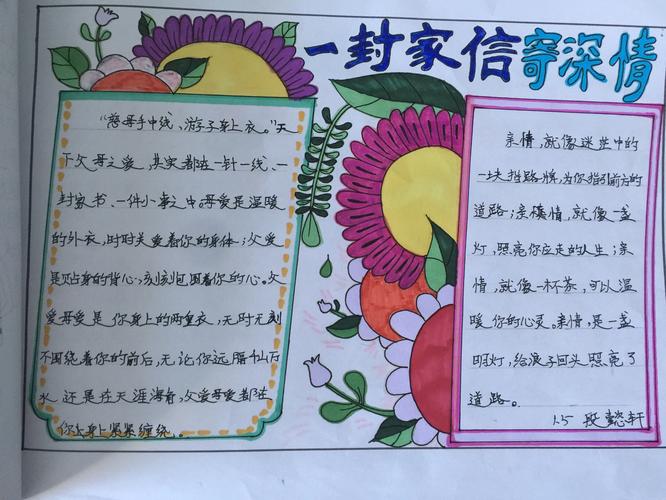 一封家信寄深情
"慈母手中线、游子身上衣。"天
下父母之爱,其实都在一针一线、一
封家书、一件小事之中母爱是温暖
的外衣,时时关爱着你的身体;父爱
是贴身的背心,刻刻包围着你的心。父
爱母爱是你身上的两重衣,无时无刻
不围绕着你的前后,无论你远隔千山万
水,还是在天涯海角,父爱母爱都在
你上身紧紧缠绕。
亲情,就像迷茫中的
一块指路牌,为你指引前方的
道路;亲情,就像一盏
灯,照亮你应走的人生;亲
情,就像一杯茶,可以温
暖你的心灵。亲情,是一盏
明灯,给浪子回头照亮了
道路。
1.5 段懿轩